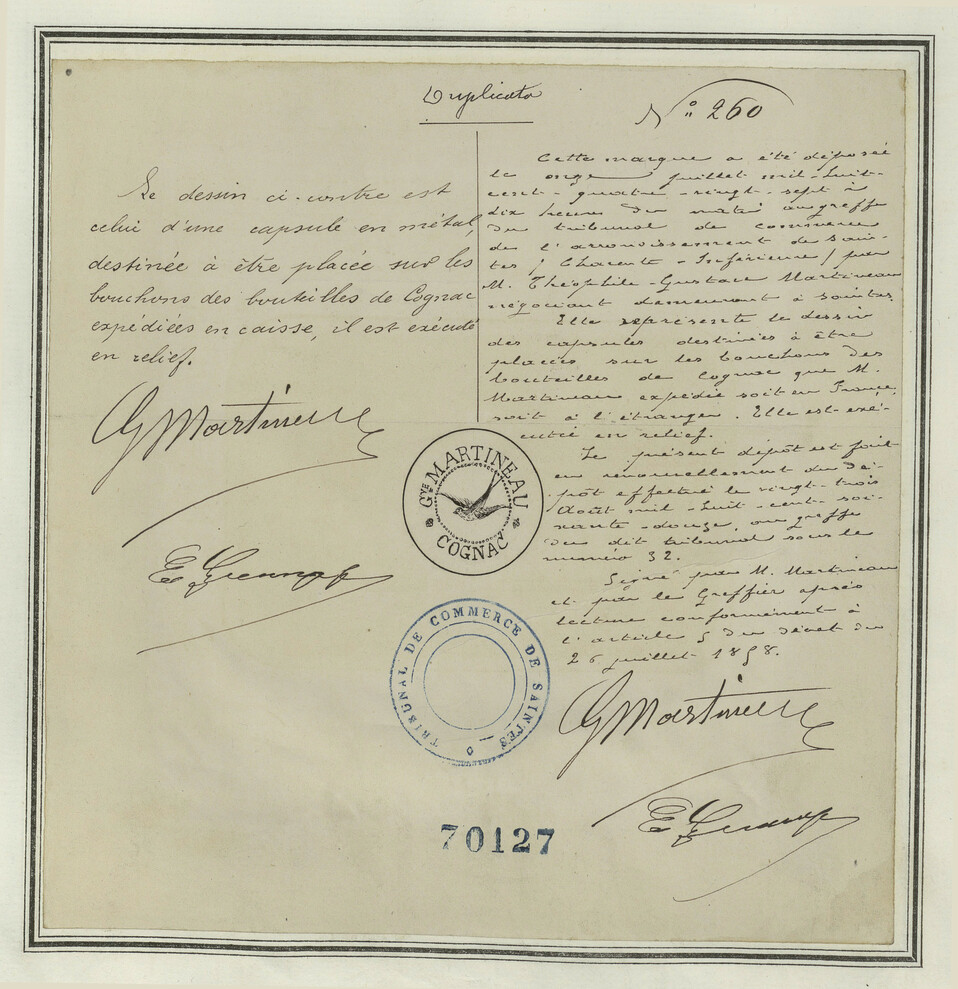 Duplicata
N° 260
Le dessin ci-contre est
celui d'une capsule en métal,
destinée à être placée sur les
bouchons des bouteilles de Cognac
expédiées en caisse, il est exécuté
en relief.
GMartineau
Cette marque a été déposée
le onze juillet mil-huit-
cent-quatre-vingt-sept à
dix heures du matin au greffe
du tribunal de commerce
de l'arrondissement de Sain-
tes (Charente-Inférieure) par
M. Théophile-Gustave Martineau
négociant demeurant à Saintes.
Elle représente le dessin
des capsules destinées à être
placées sur les bouchons des
bouteilles de Cognac que M.
Martineau expédie soit en France,
soit à l'étranger. Elle est exé-
cutée en relief.
Le présent dépôt est fait
en renouvellement du dé-
pôt effectué le vingt-trois
Août mil-huit-cent-soi-
xante-douze, au greffe
du dit tribunal sous le
numéro 32.
Signé par M. Martineau
et par le Greffier après
lecture conformément à
l'article 5 du décret du
26 juillet 1858.
GMartineau
Gve MARTINEAU
COGNAC
TRIBUNAL DE COMMERCE DE SAINTES
70127